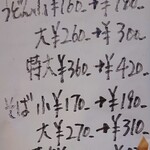 うどん小¥160→¥180
大¥260→¥300
特大¥360→¥420
そば小¥170→¥190
大¥270→¥310